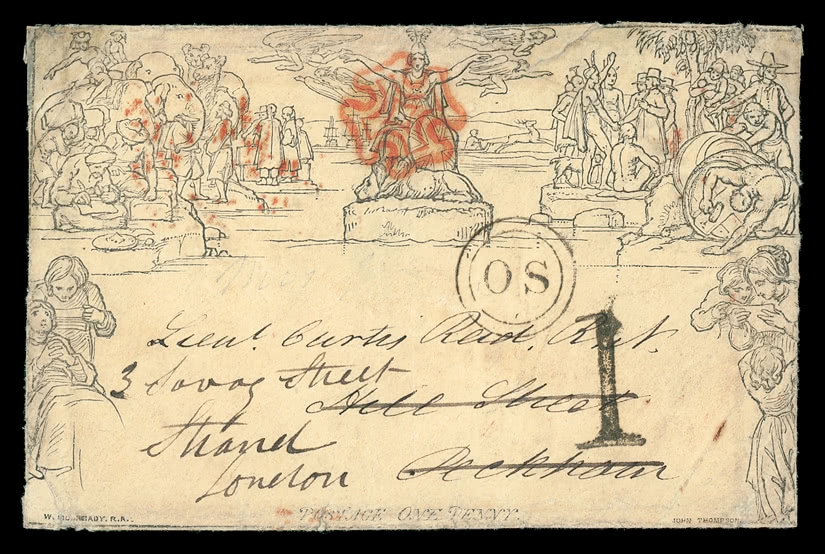 OS
Lieut. Curtis Reid, R.N.
1
3 Savoy Street
Hill Street
Strand
London
Peckham
POSTAGE ONE PENNY.
W. MULREADY, R.A.
JOHN THOMPSON